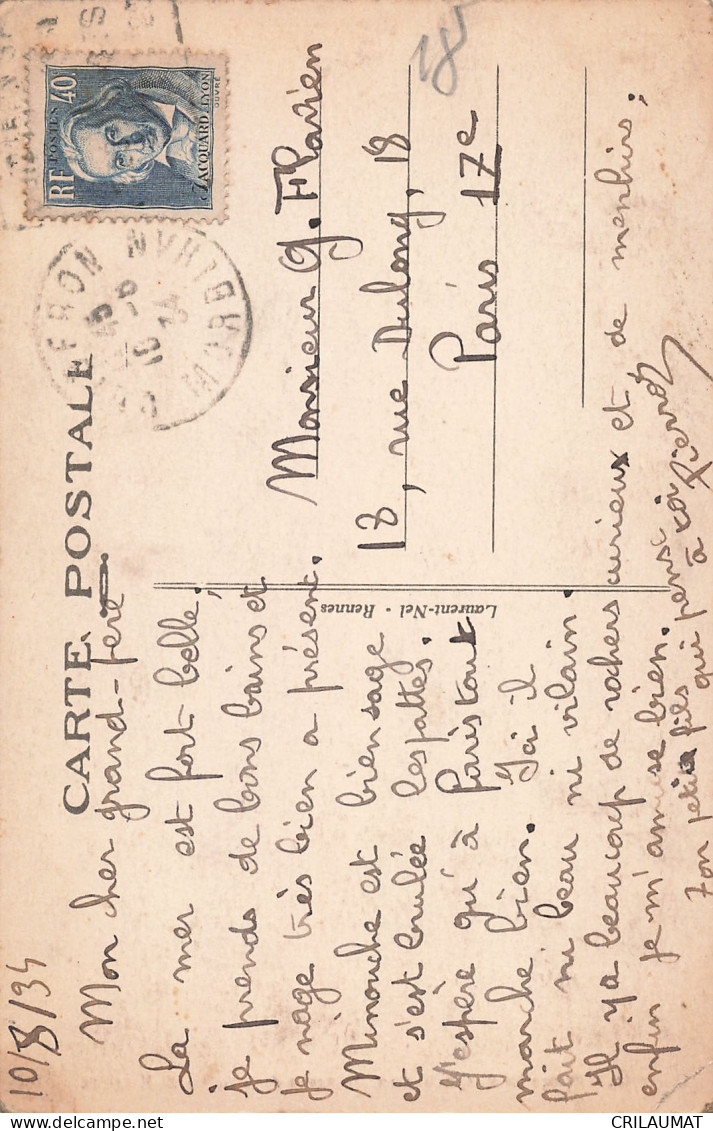 10/8/34
CARTE POSTALE
RF POSTES 40c
JACQUARD. LYON
OUVRÉ
MORBIHAN
185
Mon cher grand-père
La mer est fort belle,
je prends de bons bains et
je nage très bien a présent.
Minouche est bien sage
et s'est brulée les pattes.
J'espère qu'à Paris tout
marche bien. Ici il
fait ni beau ni vilain.
Il y a beaucoup de rochers curieux et de menhirs,
enfin je m'amuse bien.
Ton petit fils qui pense
à toi Pierrot
Laurent-Nel - Rennes
Monsieur G. Flavien
18, rue Dulong, 18
Paris 17e
CRILAUMAT